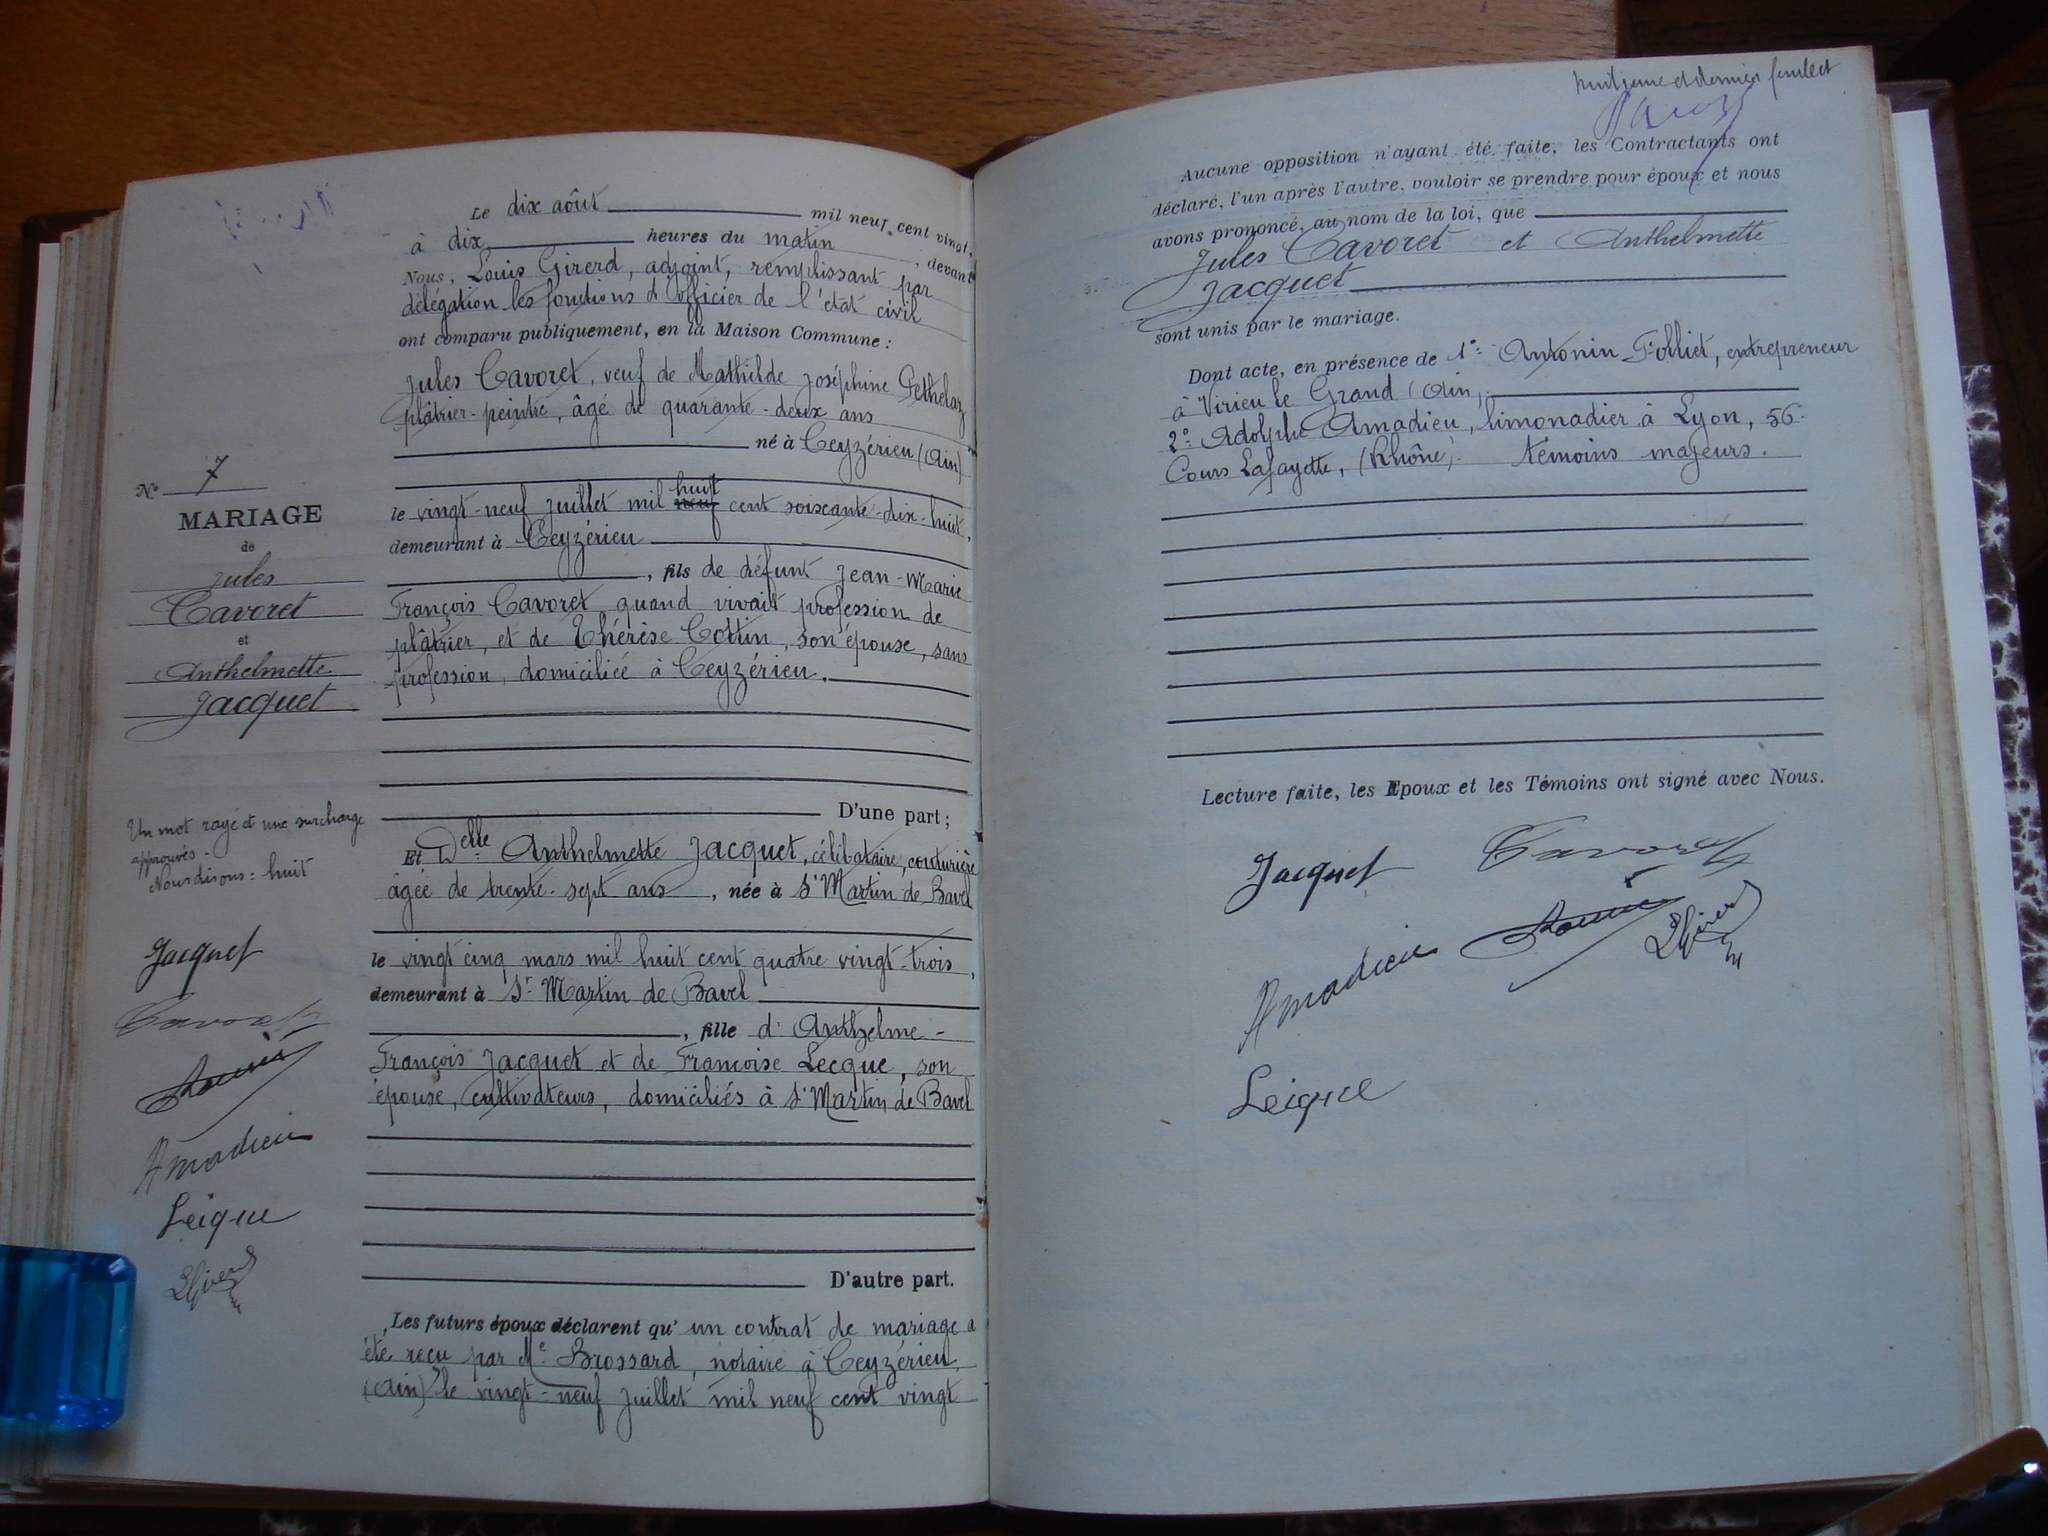 N° 7
MARIAGE
de
Jules
Cavoret
et
Anthelmette
Jacquet
Un mot rayé et une surcharge
approuvés.
Nous disons : huit
Jacquet
Cavoret
Amadieu
Leique
LGirerd
Le dix août mil neuf cent vingt,
à dix heures du matin, devant
Nous, Louis Girerd, adjoint, remplissant par
délégation les fonctions d'officier de l'état civil
ont comparu publiquement, en la Maison Commune :
Jules Cavoret, veuf de Mathilde Joséphine Pethelaz
plâtrier-peintre, âgé de quarante-deux ans
né à Ceyzérieu (Ain)
huit
le vingt-neuf juillet mil neuf cent soixante-dix-huit,
demeurant à Ceyzérieu
, fils de défunt Jean-Marie
François Cavoret quand vivait profession de
plâtrier, et de Thérèse Cottin, son épouse, sans
profession, domiciliée à Ceyzérieu.
D'une part ;
Et Delle Anthelmette Jacquet, célibataire, couturière
âgée de trente-sept ans, née à St Martin de Bavel
le vingt cinq mars mil huit cent quatre vingt-trois,
demeurant à St Martin de Bavel
, fille d'Anthelme-
François Jacquet et de Francoise Lecque, son
épouse, cultivateurs, domiciliés à St Martin de Bavel
D'autre part.
Les futurs époux déclarent qu'un contrat de mariage a
été reçu par Me Brossard, notaire à Ceyzérieu
(Ain) le vingt-neuf juillet mil neuf cent vingt
huitième et dernier feuillet
Aucune opposition n'ayant été faite, les Contractants ont
déclaré, l'un après l'autre, vouloir se prendre pour époux et nous
avons prononcé, au nom de la loi, que
Jules Cavoret et Anthelmette
Jacquet
sont unis par le mariage.
Dont acte, en présence de 1°= Antonin Folliet, entrepreneur
à Virieu le Grand (Ain,
2°= Adolphe Amadieu, limonadier à Lyon, 56.
Cours Lafayette, (Rhône). Témoins majeurs.
Lecture faite, les Epoux et les Témoins ont signé avec Nous.
Jacquet Cavoret
Amadieu LGirerd
Leique